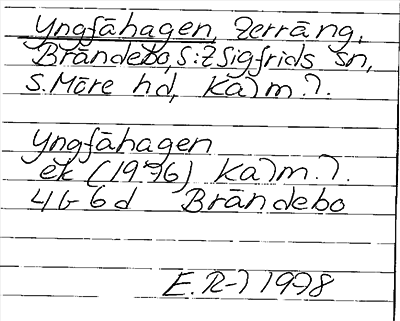 Yngfåhagen, Terräng,
Brändebo, S:t Sigfrids sn,
S. Möre hd, Kalm. l.
Yngfåhagen
ek (1976) Kalm. l.
4G 6d Brändebo
E. R-l 1978